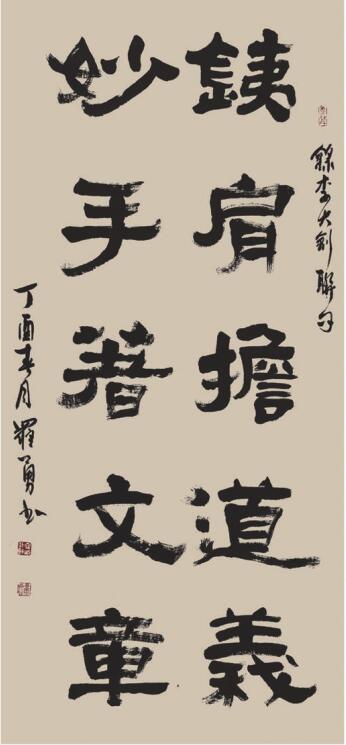 錄李大釗聯句
銕肩擔道義
妙手著文章
丁酉春月羅勇書